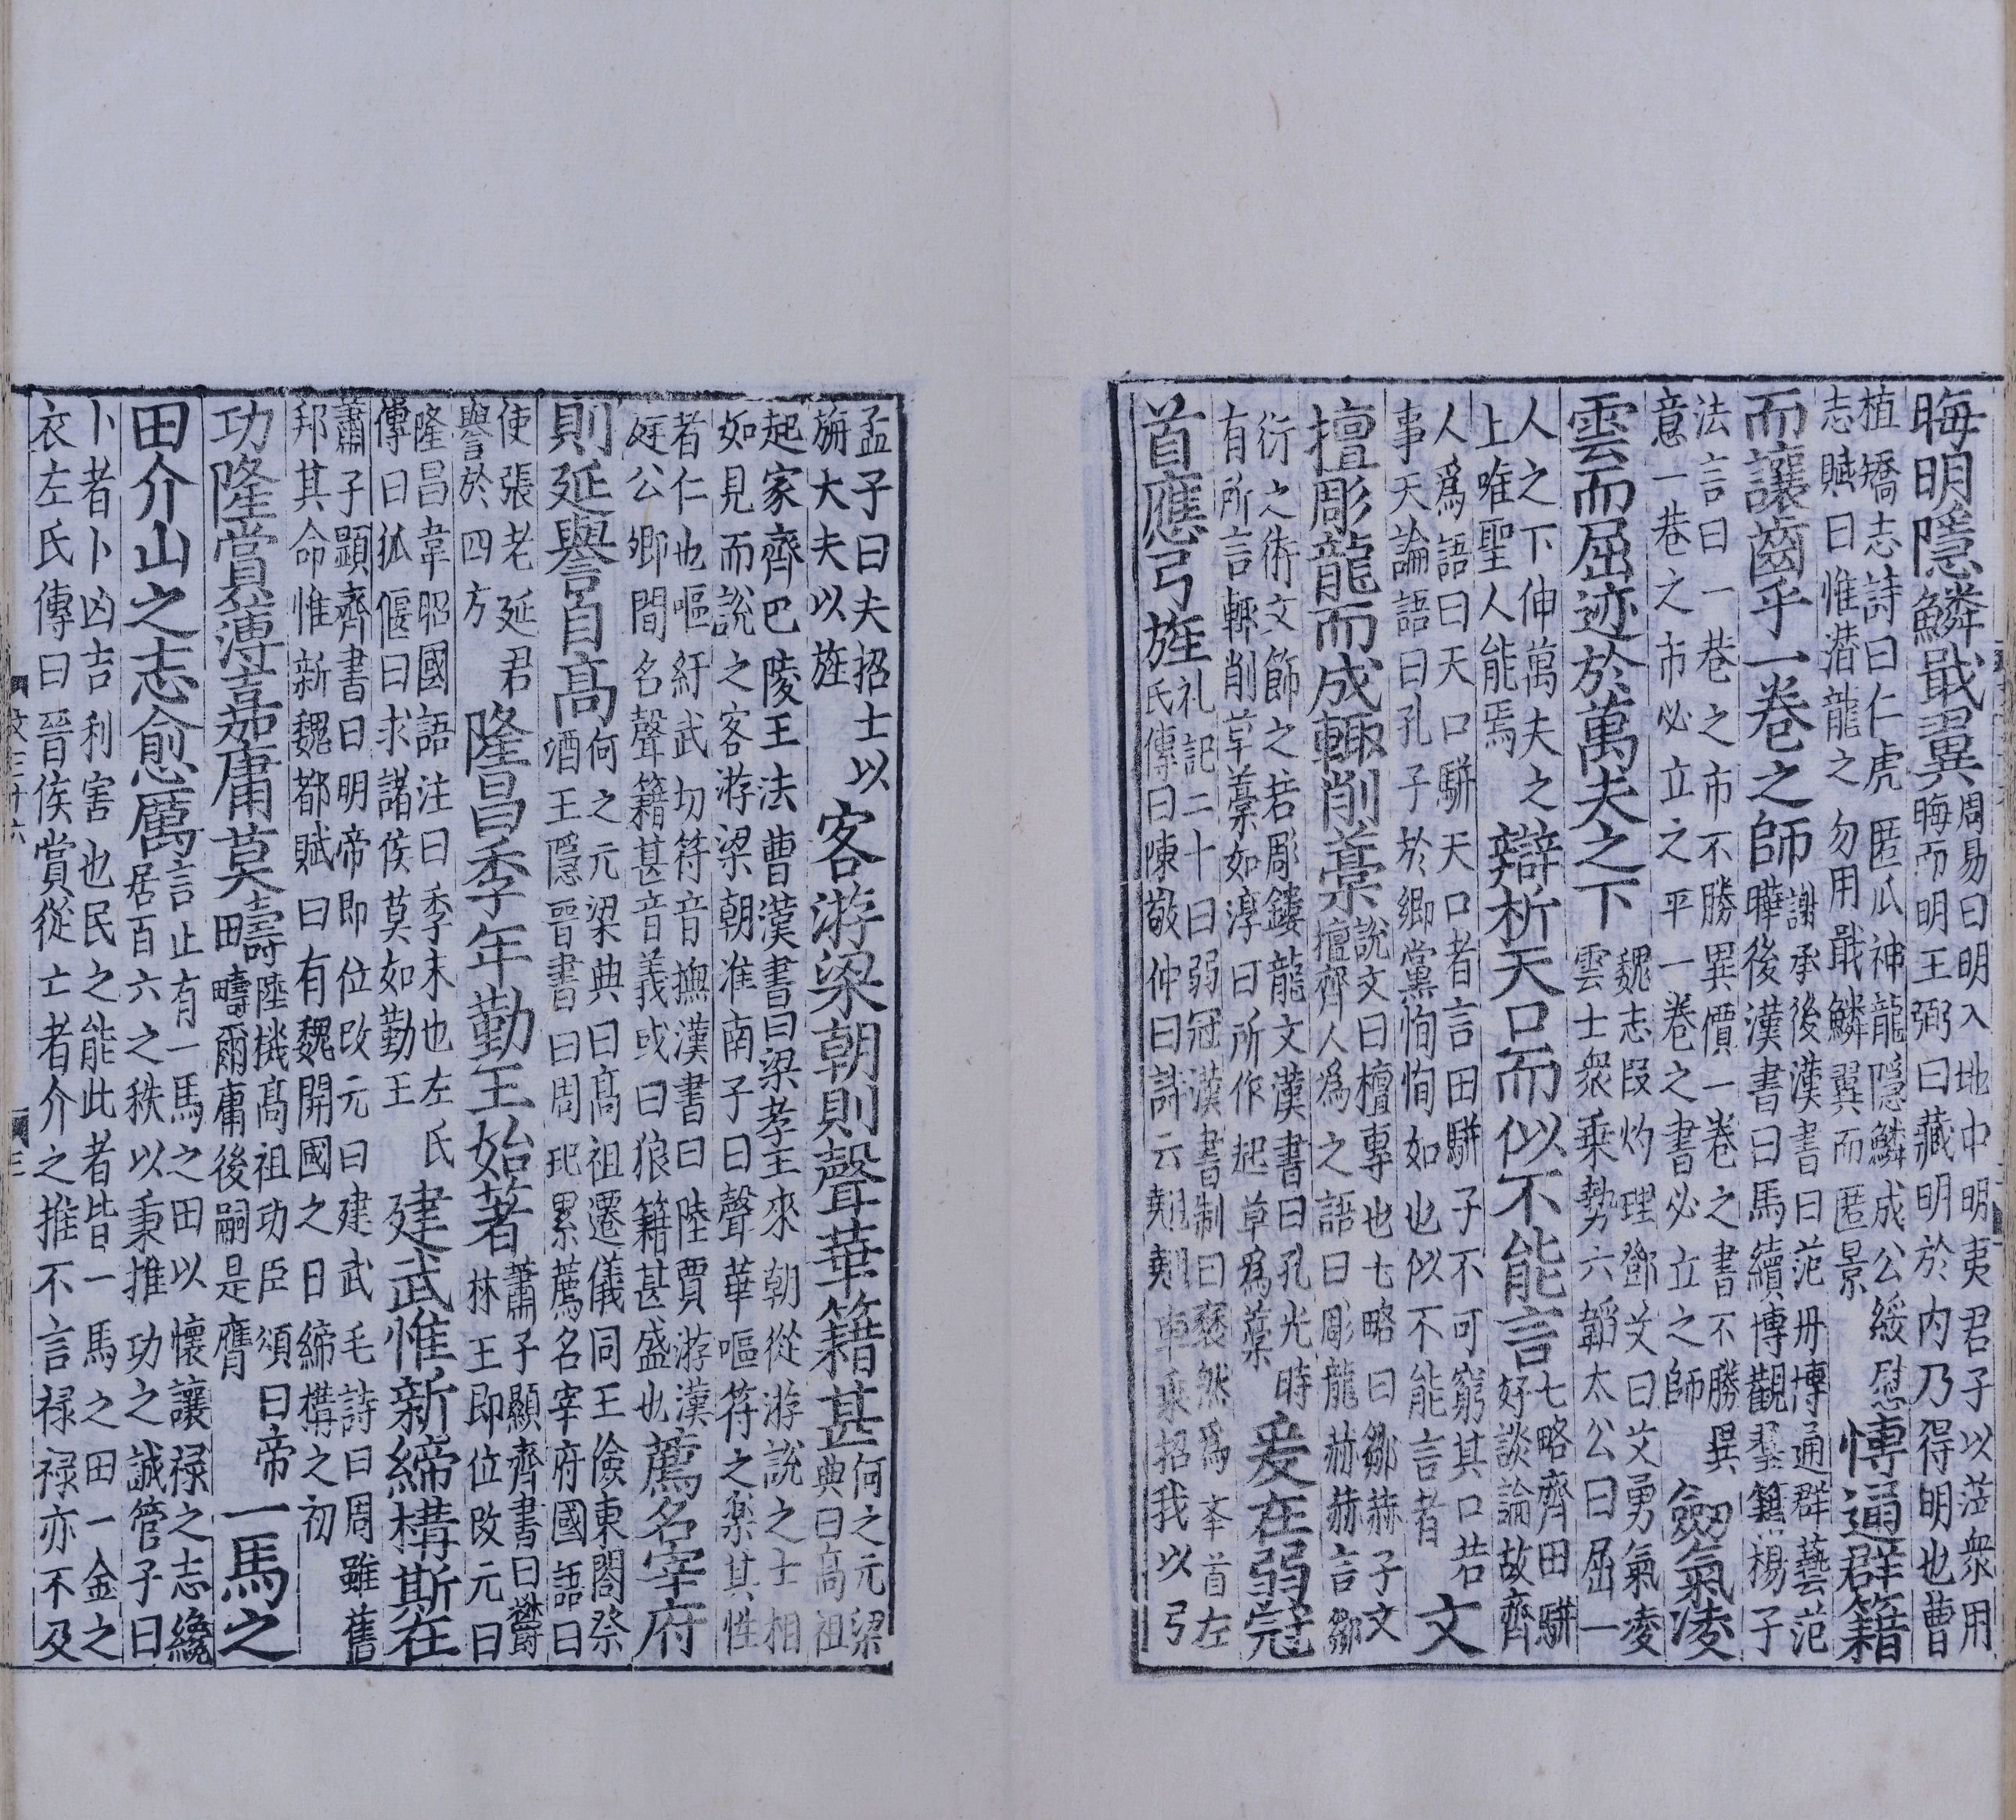 晦明隱鱗戢翼周易曰明入地中明夷君子以莅衆用晦而明王弼曰藏明於内乃得明也曹
植矯志詩曰仁虎匿爪神龍隱鱗成公綏慰志賦曰惟潜龍之勿用戢鱗翼而匿景博通群籍
而讓齒乎一卷之師謝承後漢書曰范冊博通群藝范曄後漢書曰馬續博觀羣籍楊子
法言曰一巷之市不勝異價一卷之書不勝異意一巷之市必立之平一卷之書必立之師劒氣凌
雲而屈迹於萬夫之下魏志段灼理鄧艾曰艾勇氣凌雲士衆乗勢六韜太公曰屈一
人之下伸萬夫之上唯聖人能焉辯析天口而似不能言七略齊田駢好談論故齊
人爲語曰天口駢天口者言田駢子不可窮其口若事天論語曰孔子於鄉黨恂恂如也似不能言者文
擅彫龍而成輙削藁說文曰擅專也七略曰鄒赫子文擅齊人為之語曰彫龍赫赫言鄒
衍之術文飾之若彫鏤龍文漢書曰孔光時有所言輙削草藁如淳曰所作起草爲藁爰在弱冠
首應弓旌礼記二十曰弱冠漢書制曰襃然爲举首左氏傳曰陳敬仲曰詩云翹翹車乗招我以弓
孟子曰夫招士以旃大夫以旌客游梁朝則聲華籍甚何之元梁典曰高祖
起家齊巴陵王法曹漢書曰梁孝王來朝從游說之士相如見而說之客游梁朝淮南子曰聲華嘔符之樂其性
者仁也嘔紆武切符音撫漢書曰陸賈游漢庭公卿間名聲籍甚音義或曰狼籍甚盛也薦名宰府
則延譽自高何之元梁典曰高祖遷儀同王儉東閤祭酒王隱晉書曰周玘累薦名宰府國語曰
使張老延君譽於四方隆昌季年勤王始著蕭子顯齊書曰欝林王即位改元曰
隆昌韋昭國語注曰季末也左氏傳曰狐偃曰求諸侯莫如勤王建武惟新締構斯在
蕭子顕齊書曰明帝即位改元曰建武毛詩曰周雖舊邦其命惟新魏都賦曰有魏開國之日締構之初
功隆賞薄嘉庸莫疇陸機高祖功臣頌曰帝疇爾庸後嗣是膺一馬之
田介山之志愈厲言止有一馬之田以懷讓禄之志纔居百六之秩以秉推功之誠管子曰
卜者卜凶吉利害也民之能此者皆一馬之田一金之衣左氏傳曰晉侯賞從亡者介之推不言禄禄亦不及